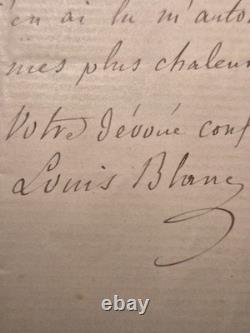 j'en ai lu m'auto
mes plus chaleur
Votre dévoué conf
Louis Blanc
ebay